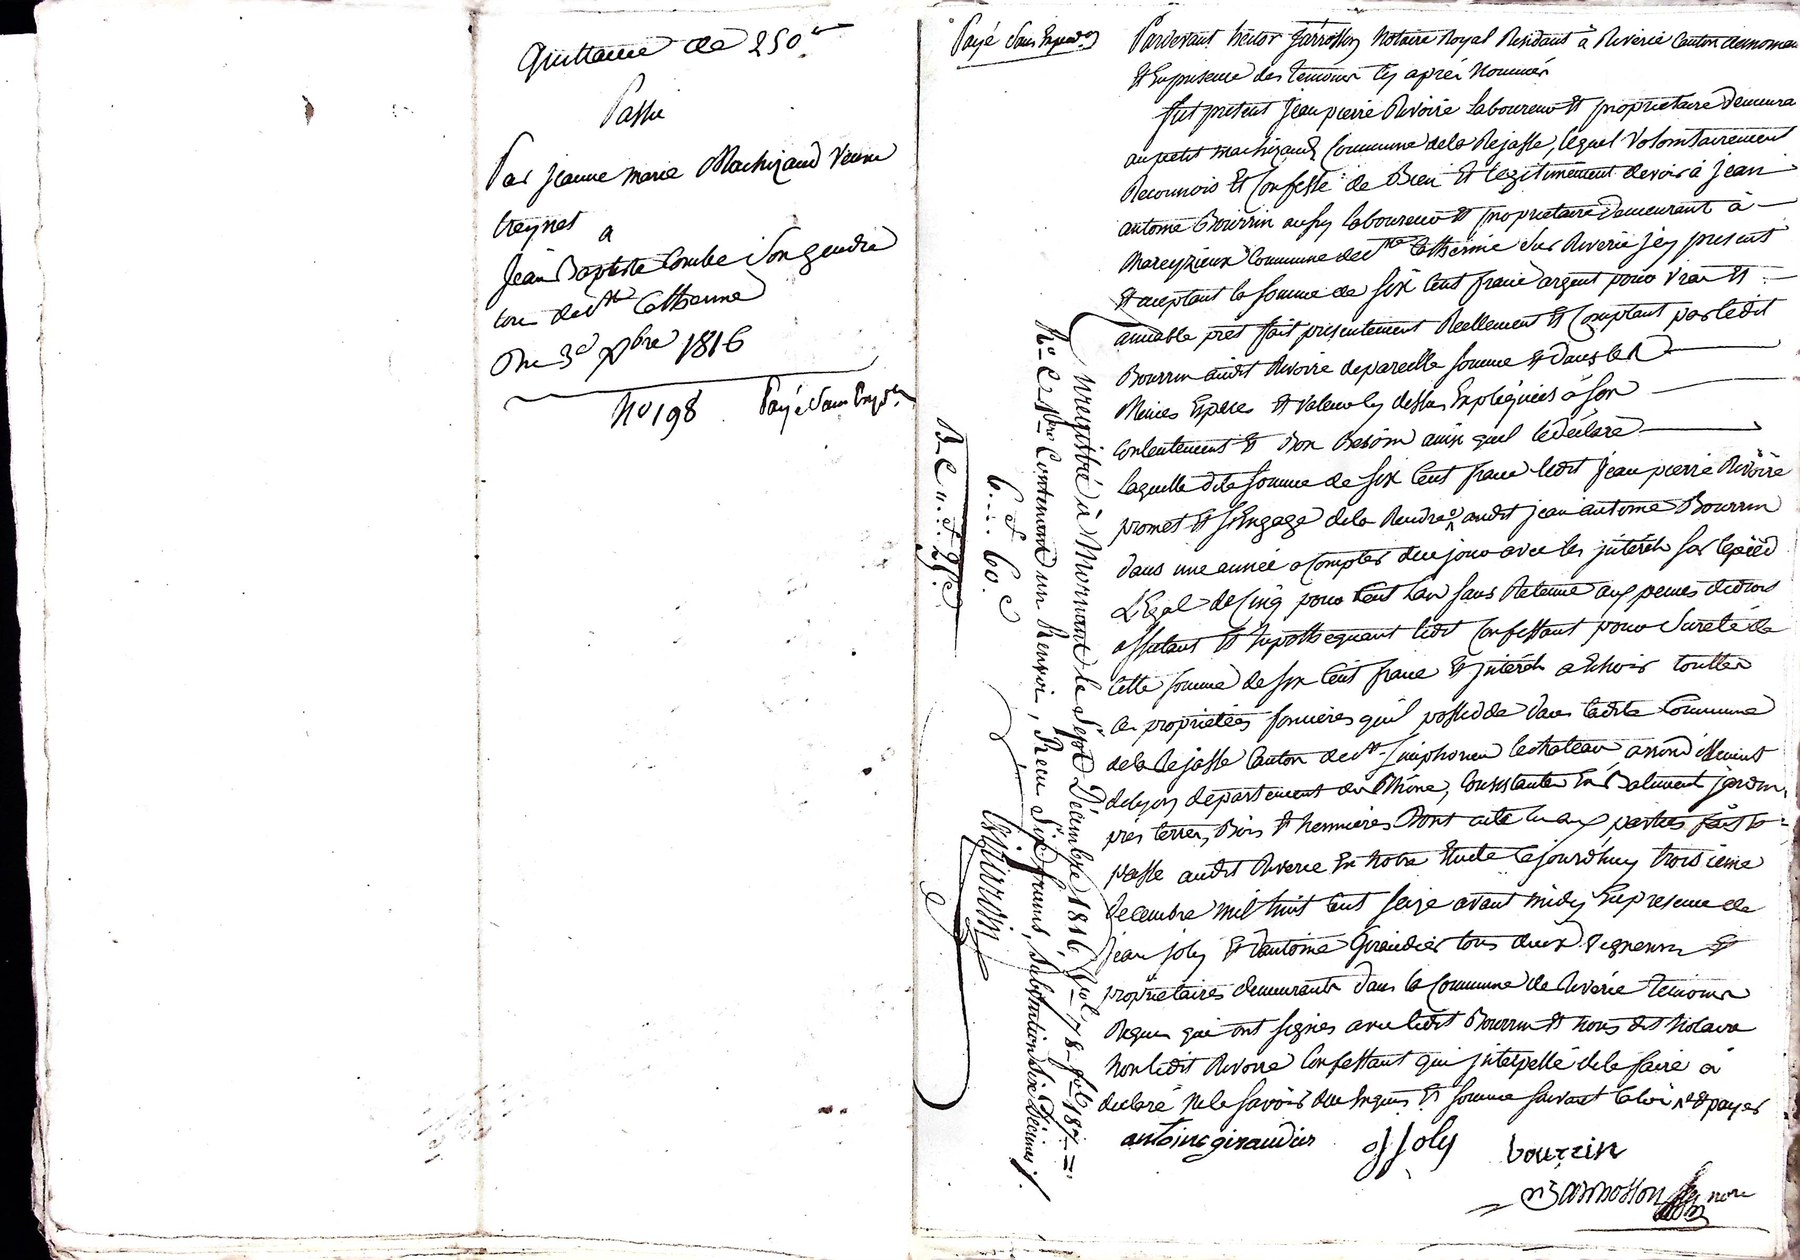 Quittance de 250 f
Passée
Par Jeanne marie Machizaud Veuve
treynet
a
Jean Baptiste Combe Son gendre
tous de Ste Catherine
Du 3e Xbre 1816
No 198 Payé Sans Expon
Payé Sans Expedon
Pardevant hector Garrosson Notaire Royal Résidant à Riverie Canton demornan
Et Enpresence des temoins Cy après Nommés
fut present Jean pierre Rivoire laboureur Et proprietaire demeura
aupetit machizaud Commune dela Rejasse, lequel Volontairement
Reconnois Et Confesse de Bien Et legitimement devoir à Jean
antoine Bourrin aussy laboureur Et proprietaire demeurant à
mareyzieux Commune de Ste Catherine sur Riverie jcy present
Et aceptant la somme de six Cent franc argent pour vrai Et
amiable pret fait presentement Reellement Et Comptant par ledit
Bourrin audit Rivoire depareille somme Et dans les
Mêmes Especes Et valeur Cy dessus Expliquées à son
Contentement Et Bon Besoin ainsi quil ledéclare
Laquelle dite somme de six Cent franc ledit Jean pierre Rivoire
promet Et sEngage dela Rendre audit jean antoine Bourrin
dans une année a Compter dece jour avec les jnterêts sur lepied
LEgal de Cinq pour Cent lan sans Retenue aux peines de droit
affectant Et hypothequant ledit Confessant pour Sureté de
Cette somme de six Cent franc Et jnterêts a Echoir touttes
les proprietées foncières quil possede dans ladite Commune
dela Rejasse Canton de St Simphorien lechateau, arrondissement
delyon département du Rhône, Consistantes En Batiment jardin,
prés terres, Bois Et hermières Dont acte lu aux parties fait Et
passé audit Riverie En notre Etude Cejourdhuy troisieme
decembre mil huit Cent seize avant midy Enpresence de
Jean Joly Et dantoine Giraudier tous deux vignerons Et
proprietaires demeurants dans la Commune de Riverie temoins
Requis qui ont signés avec ledit Bourrin Et nous dit Notaire
Non ledit Rivoire Confessant qui jnterpellé dele faire à
declaré Nele savoir de ce Enquis Et sommé suivant la loi
Et payer
antoine giraudier J Joly bourrin
Garrosson nore
Enregistré à Mornant le Sept Décembre 1816 Vol. 78 fol. 187
Ro C. 2 Vbre Contenant un Renvoi, Recu Six francs, Subvention Six Décimes.
6 f 60 c